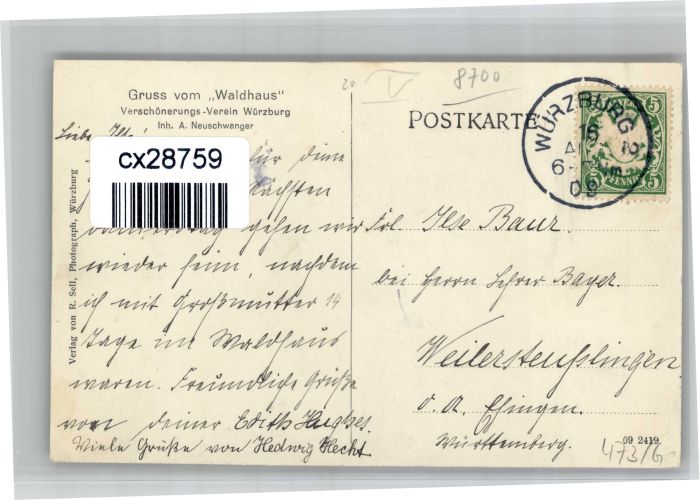 Gruss vom „Waldhaus"
Verschönerungs-Verein Würzburg
Inh. A. Neuschwanger
Verlag von R. Sell, Photograph, Würzburg
Liebe Ilse!
für deine
nächsten
gehen wir
wieder heim, nachdem
ich mit Großmutter 14
Tage im Waldhaus
waren. Freundliche Grüße
von deiner Edith Hughes.
Viele Grüße von Hedwig Hecht
cx28759
20 V 8700
POSTKARTE
WÜRZBURG 2
16
6-
09
5 5
5
Frl. Ilse Baur.
bei Herrn Lehrer Bayer.
Weilersteußlingen
O. A. Ehingen.
Württemberg.
09 2419
473/G